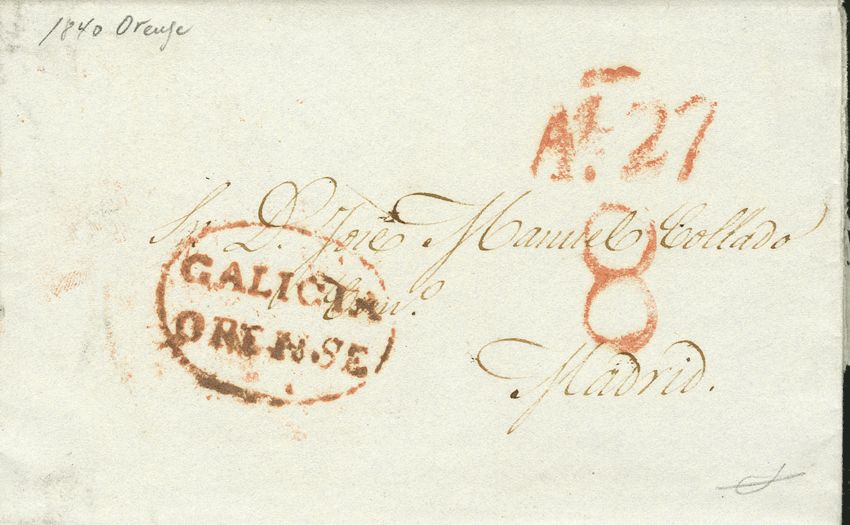 1840 Orense
A.F. 27
8
Sr. D. José Manuel Collado
GALICIA
ORENSE
Madrid.